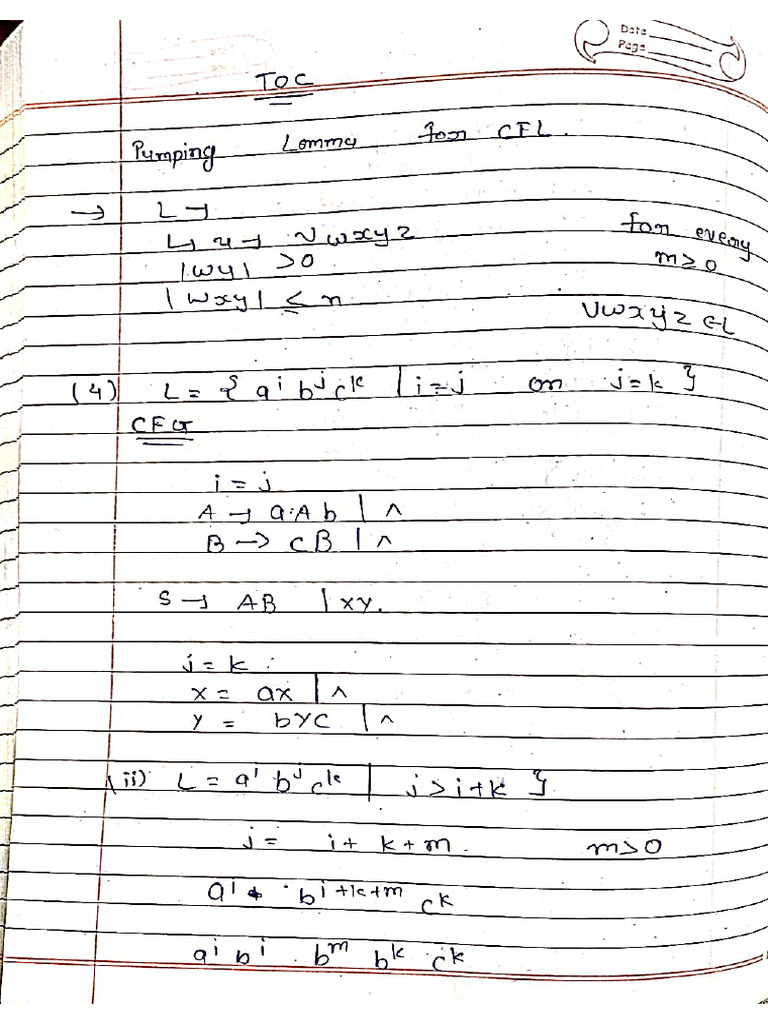 Date
Page
TOC
Pumping Lomma for CFL.
→ L →
L, u → vwxyz for every
|wy| >0 m≥0
|wxy| ≤ n
vwxyz ∈L
(4) L = { a^i b^j c^k | i=j or j=k }
CFG
i = j
A → a.Ab | ^
B → cB | ^
S → AB | xy.
j = k :
x = ax | ^
y = byc | ^
(ii) L = a^i b^j c^k | j>i+k }
j = i+ k+m. m>0
a^i . b^i+k+m c^k
a^i b^i . b^m b^k c^k